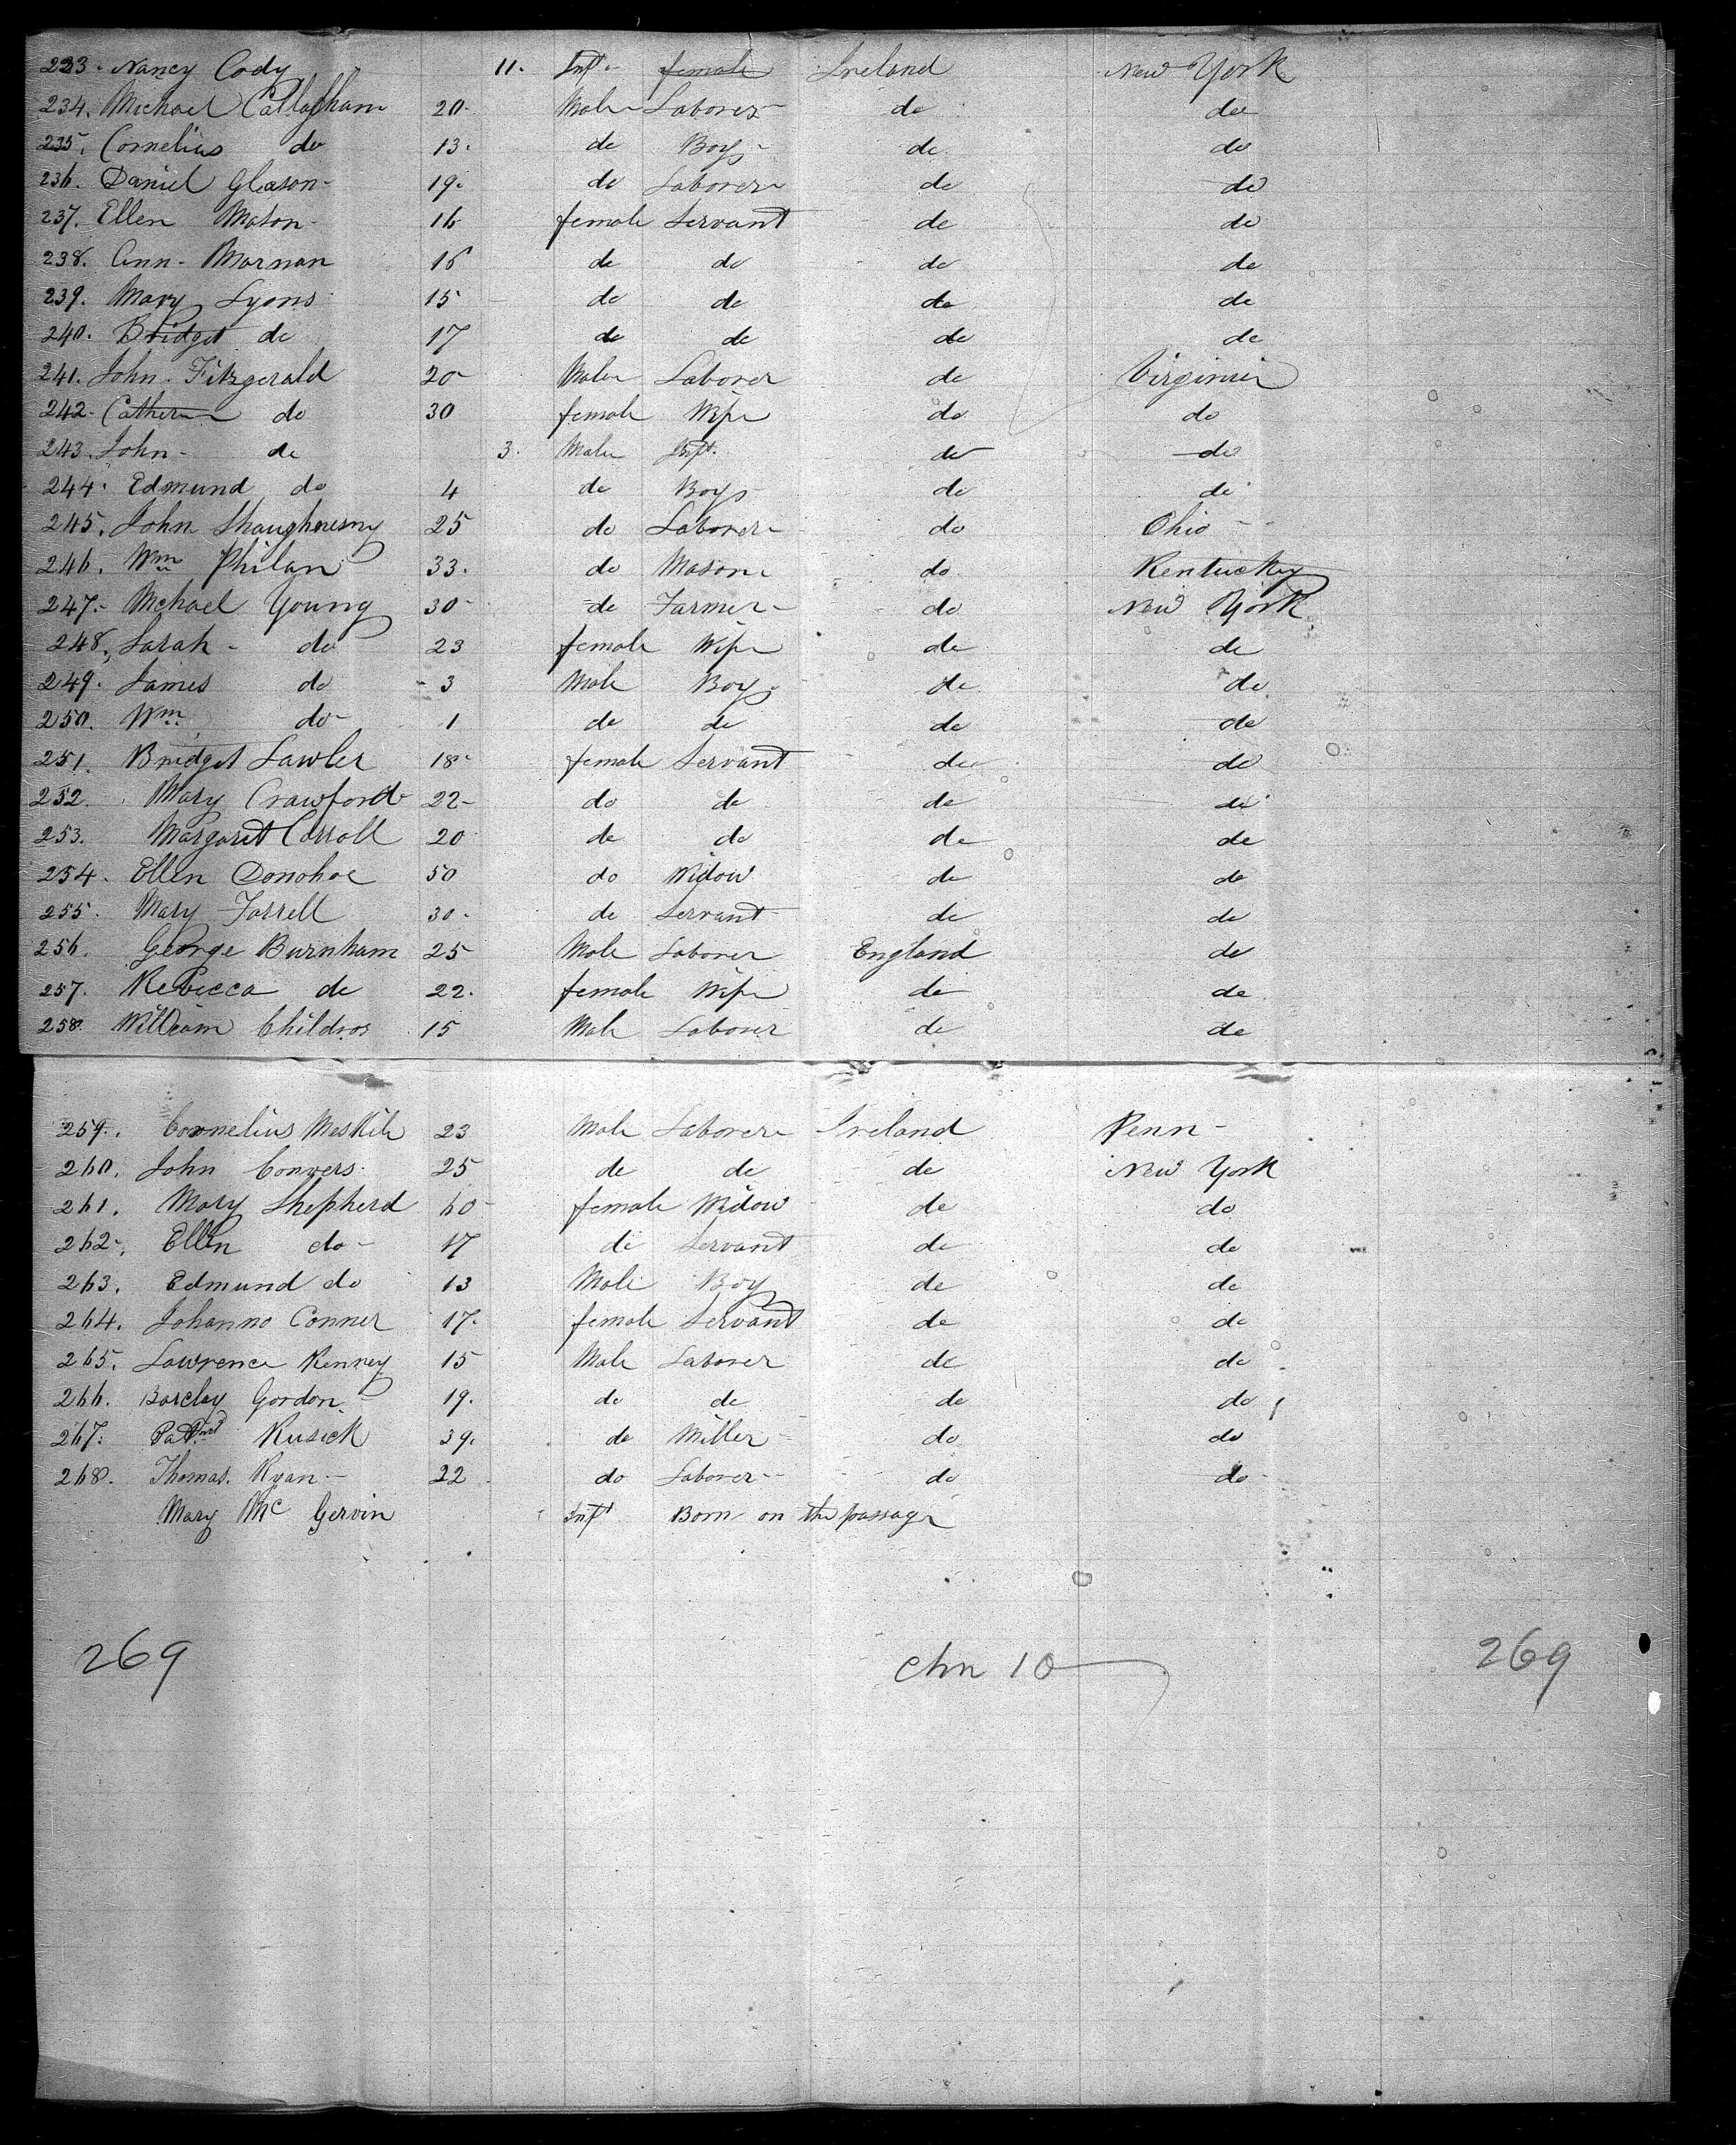 223. Nancy Cody 11. Inft. female Ireland New York
234. Michael Callagham 20 Male Laborer do do
235. Cornelius do 13. do Boy do do
236. Daniel Gleason 19. do Laborer do do
237. Ellen Mason 16 female Servant do do
238. Ann Marnan 16 do do do do
239. Mary Lyons 15 do do do do
240. Bridget do 17 do do do do
241. John Fitzgerald 20 Male Laborer do Virginia
242. Catherin do 30 female Wife do do
243. John do 3. Male Inft. do do
244. Edmund do 4 do Boy do do
245. John Shaughnesny 25 do Laborer do Ohio
246. Wm Philan 33. do Mason do Kentucky
247. Michael Young 30 do Farmer do New York
248. Sarah do 23 female Wife do do
249. James do 3 Male Boy do do
250. Wm do 1 do do do do
251. Bridget Lawler 18 female Servant do do
252. Mary Crawford 22 do do do do
253. Margaret Carroll 20 do do do do
254. Ellen Donohoe 50 do Widow do do
255. Mary Farrell 30. do Servant do do
256. George Burnham 25 Male Laborer England do
257. Rebecca do 22. female Wife do do
258. William Childros 15 Male Laborer do do
259. Cornelius Meskile 23 Male Laborer Ireland Penn
260. John Convers 25 do do do New York
261. Mary Shepherd 60 female Widow do do
262. Ellen do 17 do Servant do do
263. Edmund do 13 Male Boy do do
264. Johanno Conner 17. female Servant do do
265. Lawrence Kenney 15 Male Laborer do do
266. Barclay Gordon 19. do do do do
267. Kusick 39. do Miller do do
268. Thomas Ryan 22 do Laborer do do
Mary Mc Gervin Inft Born on the passage
269 chn 10 269